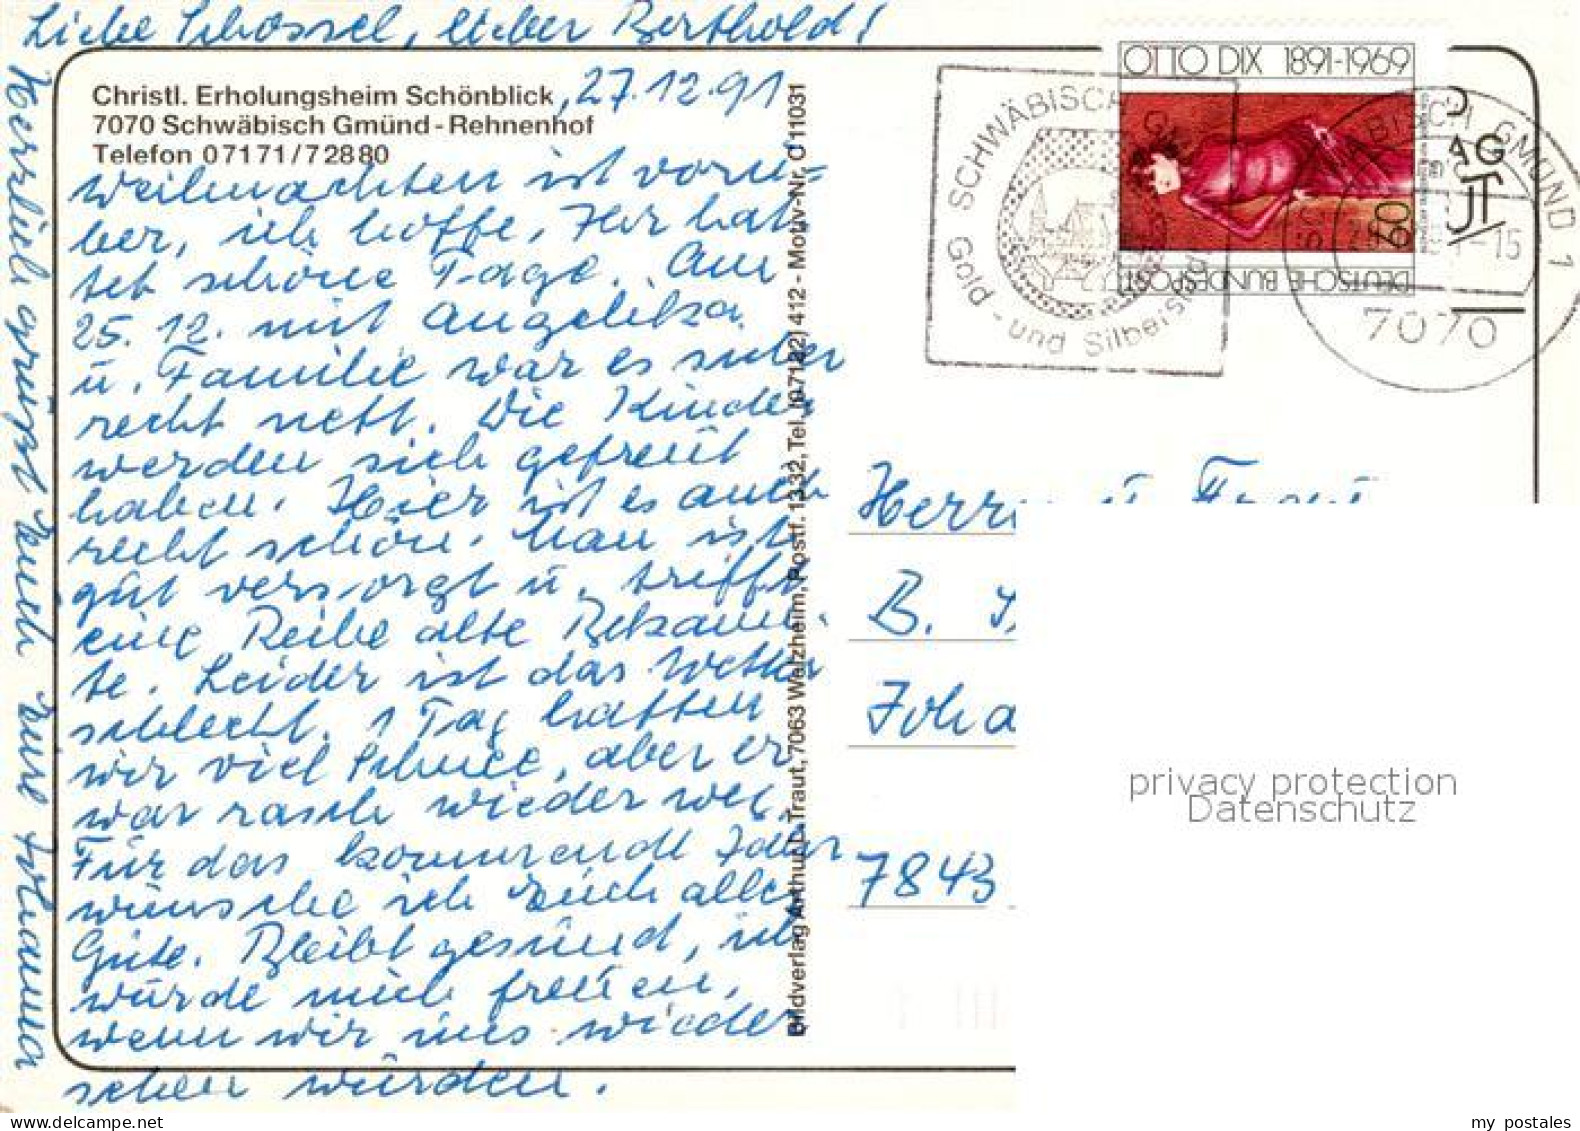 Liebe Schössel, lieber Berthold!
Christl. Erholungsheim Schönblick
7070 Schwäbisch Gmünd-Rehnenhof
Telefon 07171/72880
27.12.91
Weihnachten ist vorü-
ber, ich hoffe, Ihr hat
tet schöne Tage. Am
25. 12. mit Angelika
u. Familie war es sicher
recht nett. Die Kinder
werden sich gefreut
haben. Hier ist es auch
recht schön. Man ist
gut versorgt u. trifft
eine Reihe alte Bekann-
te. Leider ist das Wetter
schlecht. 1 Tag hatten
wir viel Schnee, aber er
war rasch wieder weg.
Für das kommende Jahr
wünsche ich Euch alles
Gute. Bleibt gesund, ich
würde mich freuen,
wenn wir uns wieder
sehen würden.
Herzlich grüsst Euch Eure Johanna
Bildverlag Arthur F. Traut, 7063 Welzheim, Postf. 1332, Tel. (07182) 412 - Motiv-Nr. O 11031
SCHWÄBISCH GMÜND
Gold - und Silberstadt
OTTO DIX 1891-1969
60
DEUTSCHE BUNDESPOST
SCHWÄBISCH GMÜND 1
-15
7070
Herrn u. Frau
B.
Joha
7843
privacy protection
Datenschutz
my postales